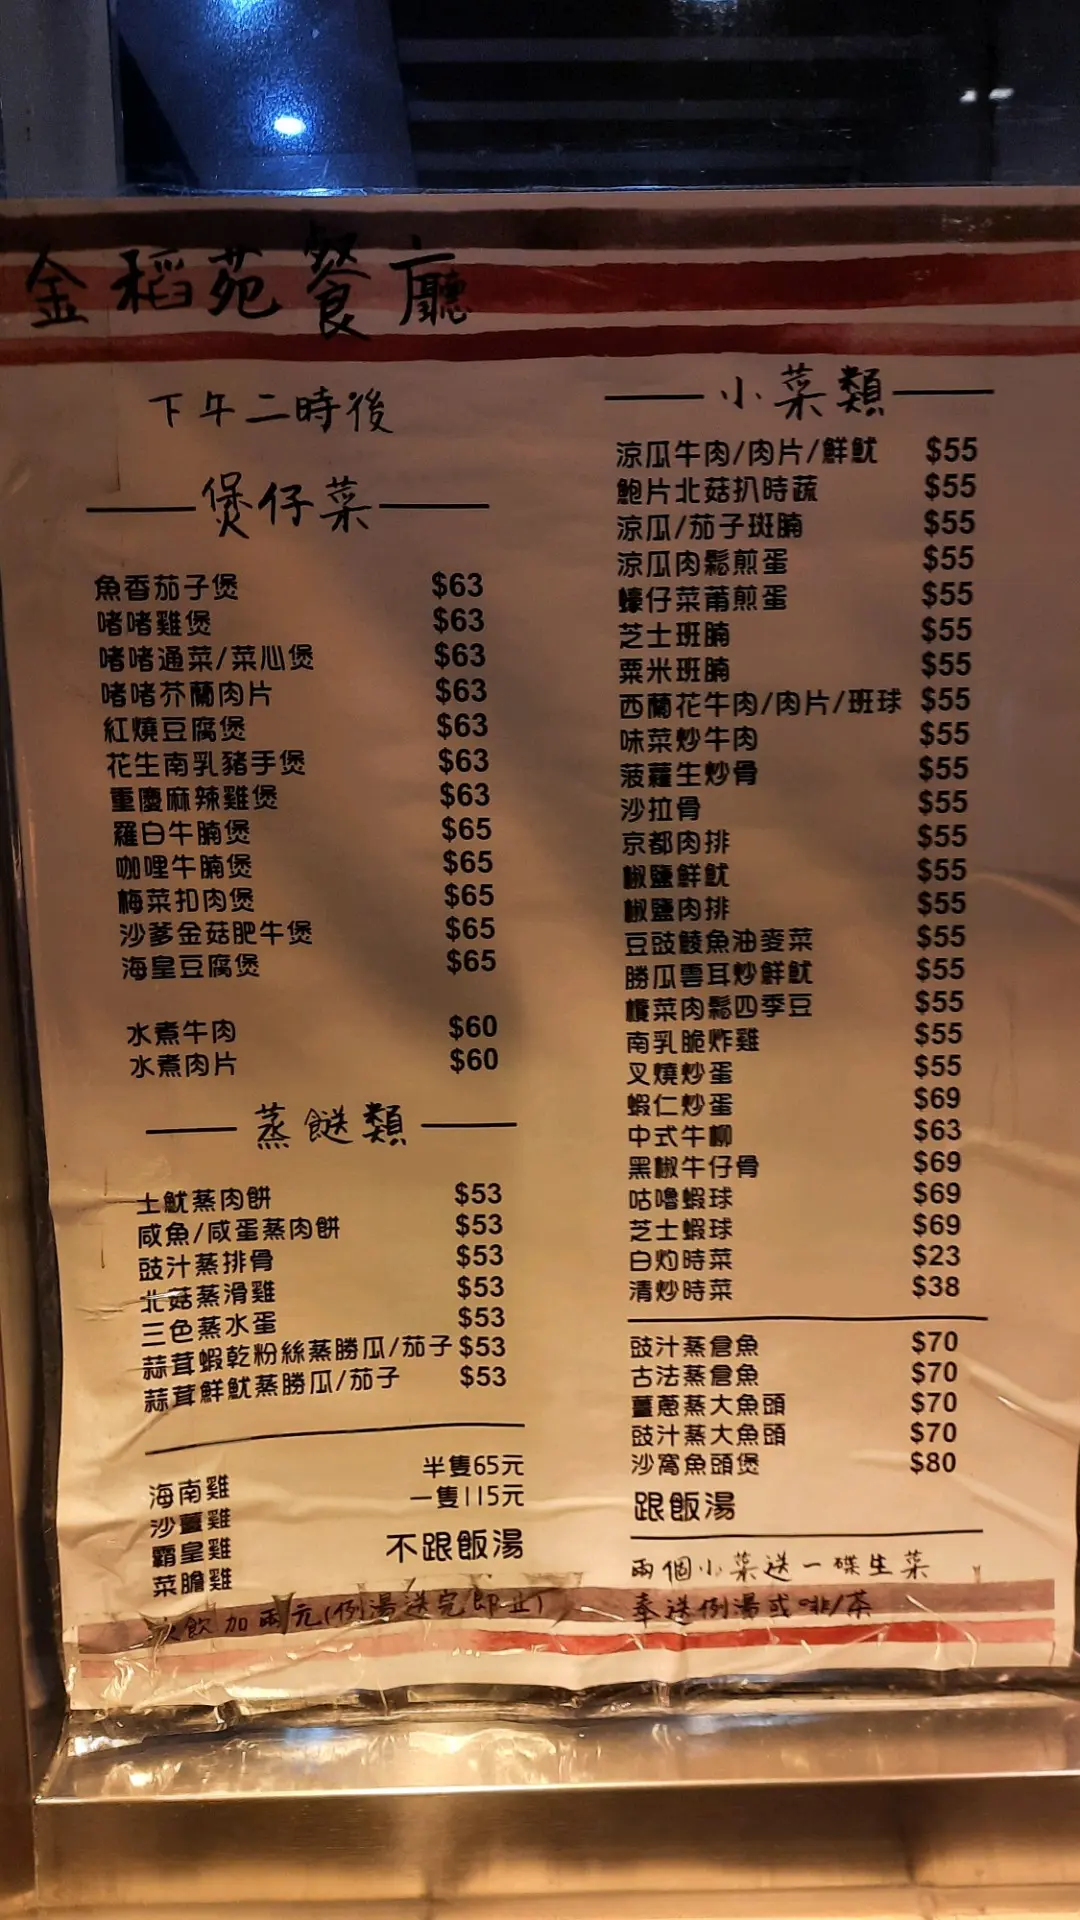 金稻苑餐廳
下午二時後
煲仔菜
魚香茄子煲 $63
啫啫雞煲 $63
啫啫通菜/菜心煲 $63
啫啫芥蘭肉片 $63
紅燒豆腐煲 $63
花生南乳豬手煲 $63
重慶麻辣雞煲 $63
羅白牛腩煲 $65
咖哩牛腩煲 $65
梅菜扣肉煲 $65
沙爹金菇肥牛煲 $65
海皇豆腐煲 $65
水煮牛肉 $60
水煮肉片 $60
蒸餸類
土魷蒸肉餅 $53
咸魚/咸蛋蒸肉餅 $53
豉汁蒸排骨 $53
北菇蒸滑雞 $53
三色蒸水蛋 $53
蒜茸蝦乾粉絲蒸勝瓜/茄子 $53
蒜茸鮮魷蒸勝瓜/茄子 $53
半隻65元
海南雞 一隻115元
沙薑雞
霸皇雞 不跟飯湯
菜膽雞
飲加兩元(例湯送完即止)
小菜類
涼瓜牛肉/肉片/鮮魷 $55
鮑片北菇扒時蔬 $55
涼瓜/茄子斑腩 $55
涼瓜肉鬆煎蛋 $55
蠔仔菜莆煎蛋 $55
芝士班腩 $55
粟米班腩 $55
西蘭花牛肉/肉片/班球 $55
味菜炒牛肉 $55
菠蘿生炒骨 $55
沙拉骨 $55
京都肉排 $55
椒鹽鮮魷 $55
椒鹽肉排 $55
豆豉鯪魚油麥菜 $55
勝瓜雲耳炒鮮魷 $55
欖菜肉鬆四季豆 $55
南乳脆炸雞 $55
叉燒炒蛋 $55
蝦仁炒蛋 $69
中式牛柳 $63
黑椒牛仔骨 $69
咕嚕蝦球 $69
芝士蝦球 $69
白灼時菜 $23
清炒時菜 $38
豉汁蒸倉魚 $70
古法蒸倉魚 $70
薑蔥蒸大魚頭 $70
豉汁蒸大魚頭 $70
沙窩魚頭煲 $80
跟飯湯
兩個小菜送一碟生菜
奉送例湯或啡/茶